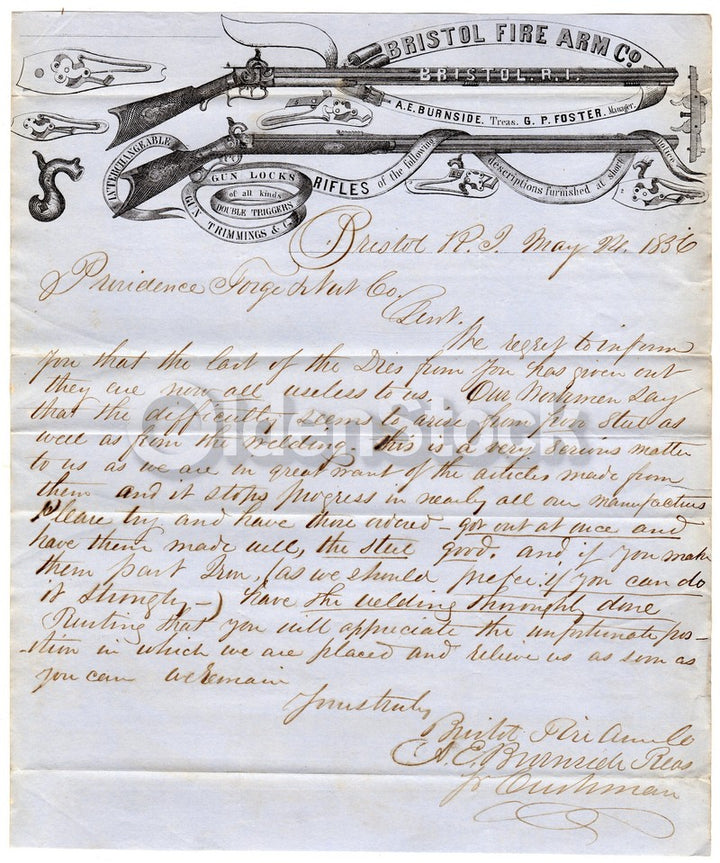 BRISTOL FIRE ARM Co
BRISTOL, R.I.
A.E. BURNSIDE. Treas. G. P. FOSTER. Manager.
INTERCHANGEABLE
GUN LOCKS
of all kinds
DOUBLE TRIGGERS
GUN TRIMMINGS & C.
RIFLES of the following descriptions furnished at short notice
Bristol R. I. May 24. 1856
Providence Forge & Nut Co.
Gent.
We regret to inform
you that the last of the Dies from you has given out
they are now all useless to us. Our Workmen say
that the difficulty seems to arise from poor Steel as
well as from the welding. This is a very serious matter
to us as we are in great want of the articles made from
them and it stops progress in nearly all our manufactures
Please try and have those ordered - got out at once and
have them made well, the steel good. and if you make
them part Iron, (as we should prefer if you can do
it strongly -) have the welding thoroughly done
Trusting that you will appreciate the unfortunate pos-
-ition in which we are placed and relieve us as soon as
you can we remain
Yours truly
Bristol Fire Arm Co
A. E. Burnside Treas
pr Cushman
OldenStock